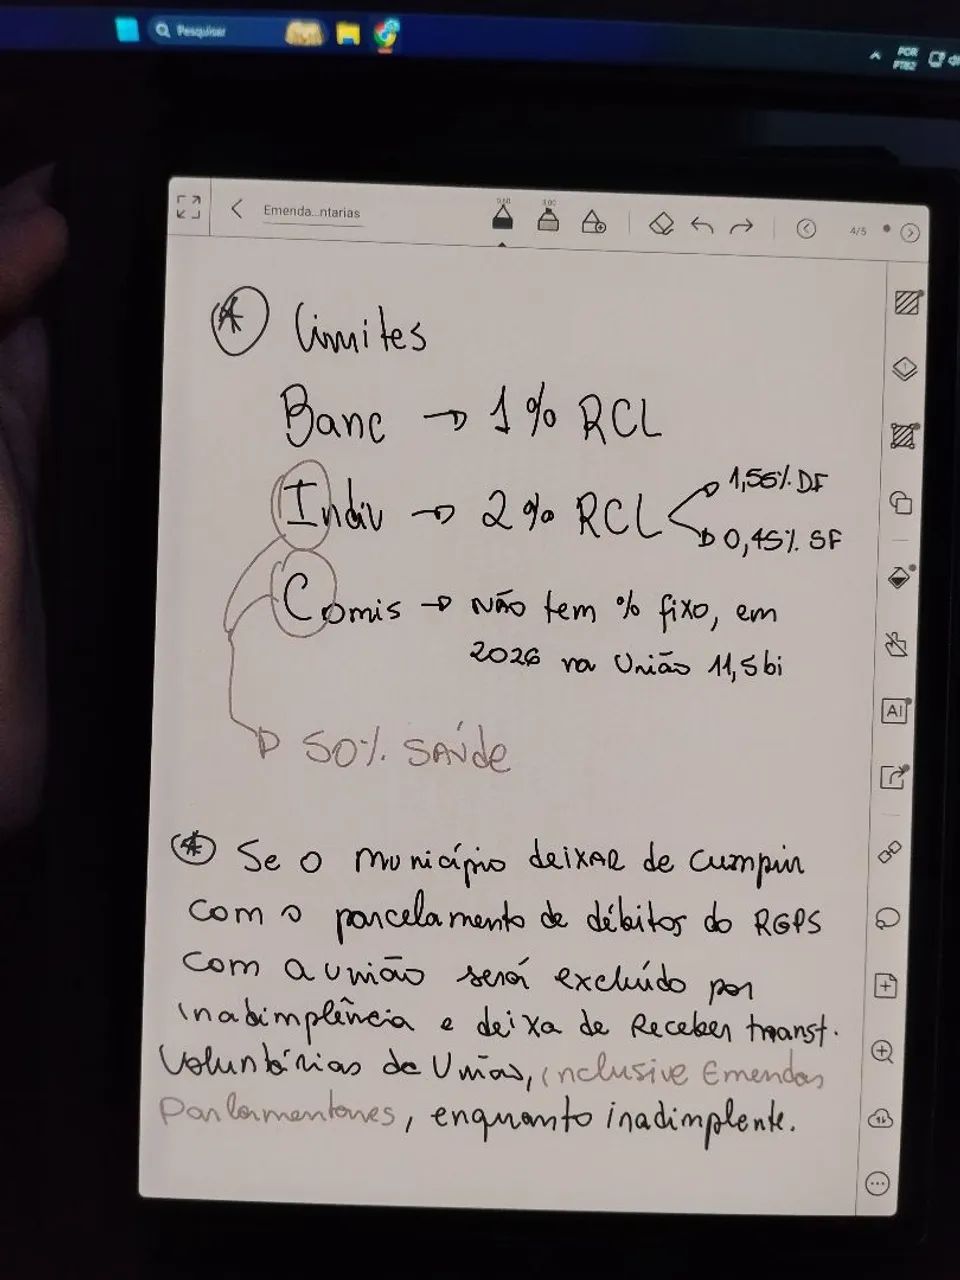 Pesquisar
POR
PTB2
Emenda...ntarias
0.60
3.00
4/5
Limites
Banc → 1% RCL
Indiv → 2% RCL
1,55% DF
0,45% SF
Comis → Não tem % fixo, em
2026 na União 11,5bi
50% SAúde
Se o município deixAR de cumprir
com o parcelamento de débitos do RGPS
com a união será excluído por
inadimplência e deixa de Receber transf.
Voluntárias da União, inclusive Emendas
Parlamentares, enquanto inadimplente.
AI